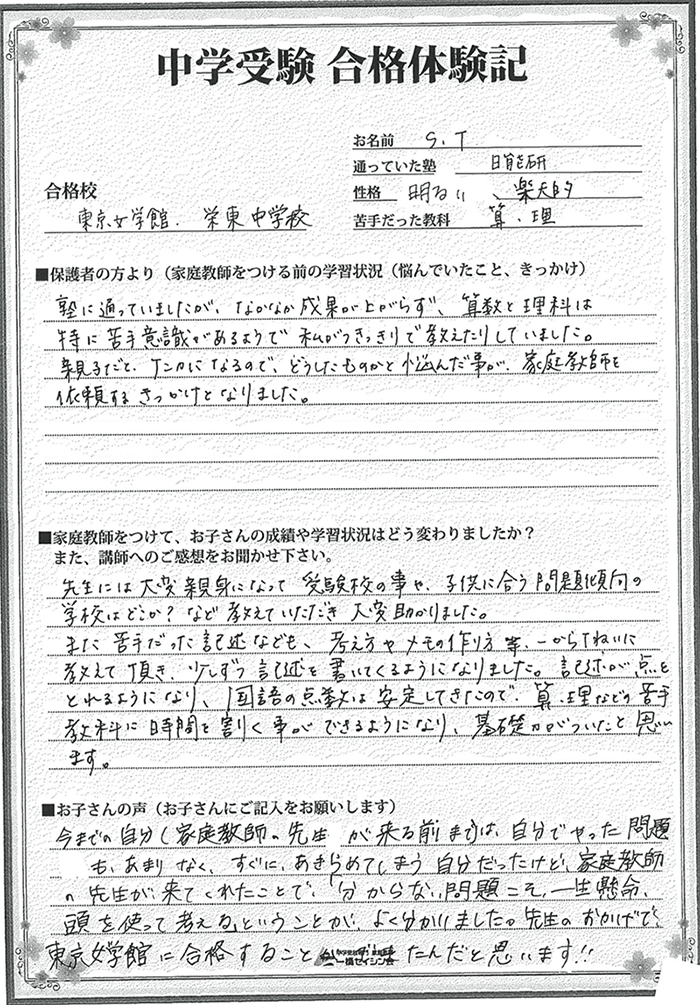 中学受験 合格体験記
お名前 S.T
通っていた塾 日能研
合格校
性格 明るい、楽天的
東京女学館、栄東中学校
苦手だった教科 算、理
■保護者の方より（家庭教師をつける前の学習状況（悩んでいたこと、きっかけ）
塾に通っていましたが、なかなか成果が上がらず、算数と理科は
特に苦手意識があるようで私がつきっきりで教えたりしていました。
親子だと、ケンカになるので、どうしたものかと悩んだ事が、家庭教師を
依頼するきっかけとなりました。
■家庭教師をつけて、お子さんの成績や学習状況はどう変わりましたか？
また、講師へのご感想をお聞かせ下さい。
先生には大変親身になって受験校の事や、子供に合う問題傾向の
学校はどこか？など教えていただき大変助かりました。
また苦手だった記述なども、考え方やメモの作り方等、一からていねいに
教えて頂き、少しずつ記述を書いてくるようになりました。記述が点を
とれるようになり、国語の点数は安定してきたので、算、理などの苦手
教科に時間を割く事ができるようになり、基礎力がついたと思い
ます。
■お子さんの声（お子さんにご記入をお願いします）
今までの自分（家庭教師の先生 が来る前まで）は、自分でやった問題
も、あまりなく、すぐに、あきらめてしまう自分だったけど、家庭教師
の先生が、来てくれたことで、「分からない問題こそ、一生懸命、
頭を使って考える」ということが、よく分かりました。先生のおかげで、
東京女学館に合格すること 一橋セイシン会 たんだと思います!!